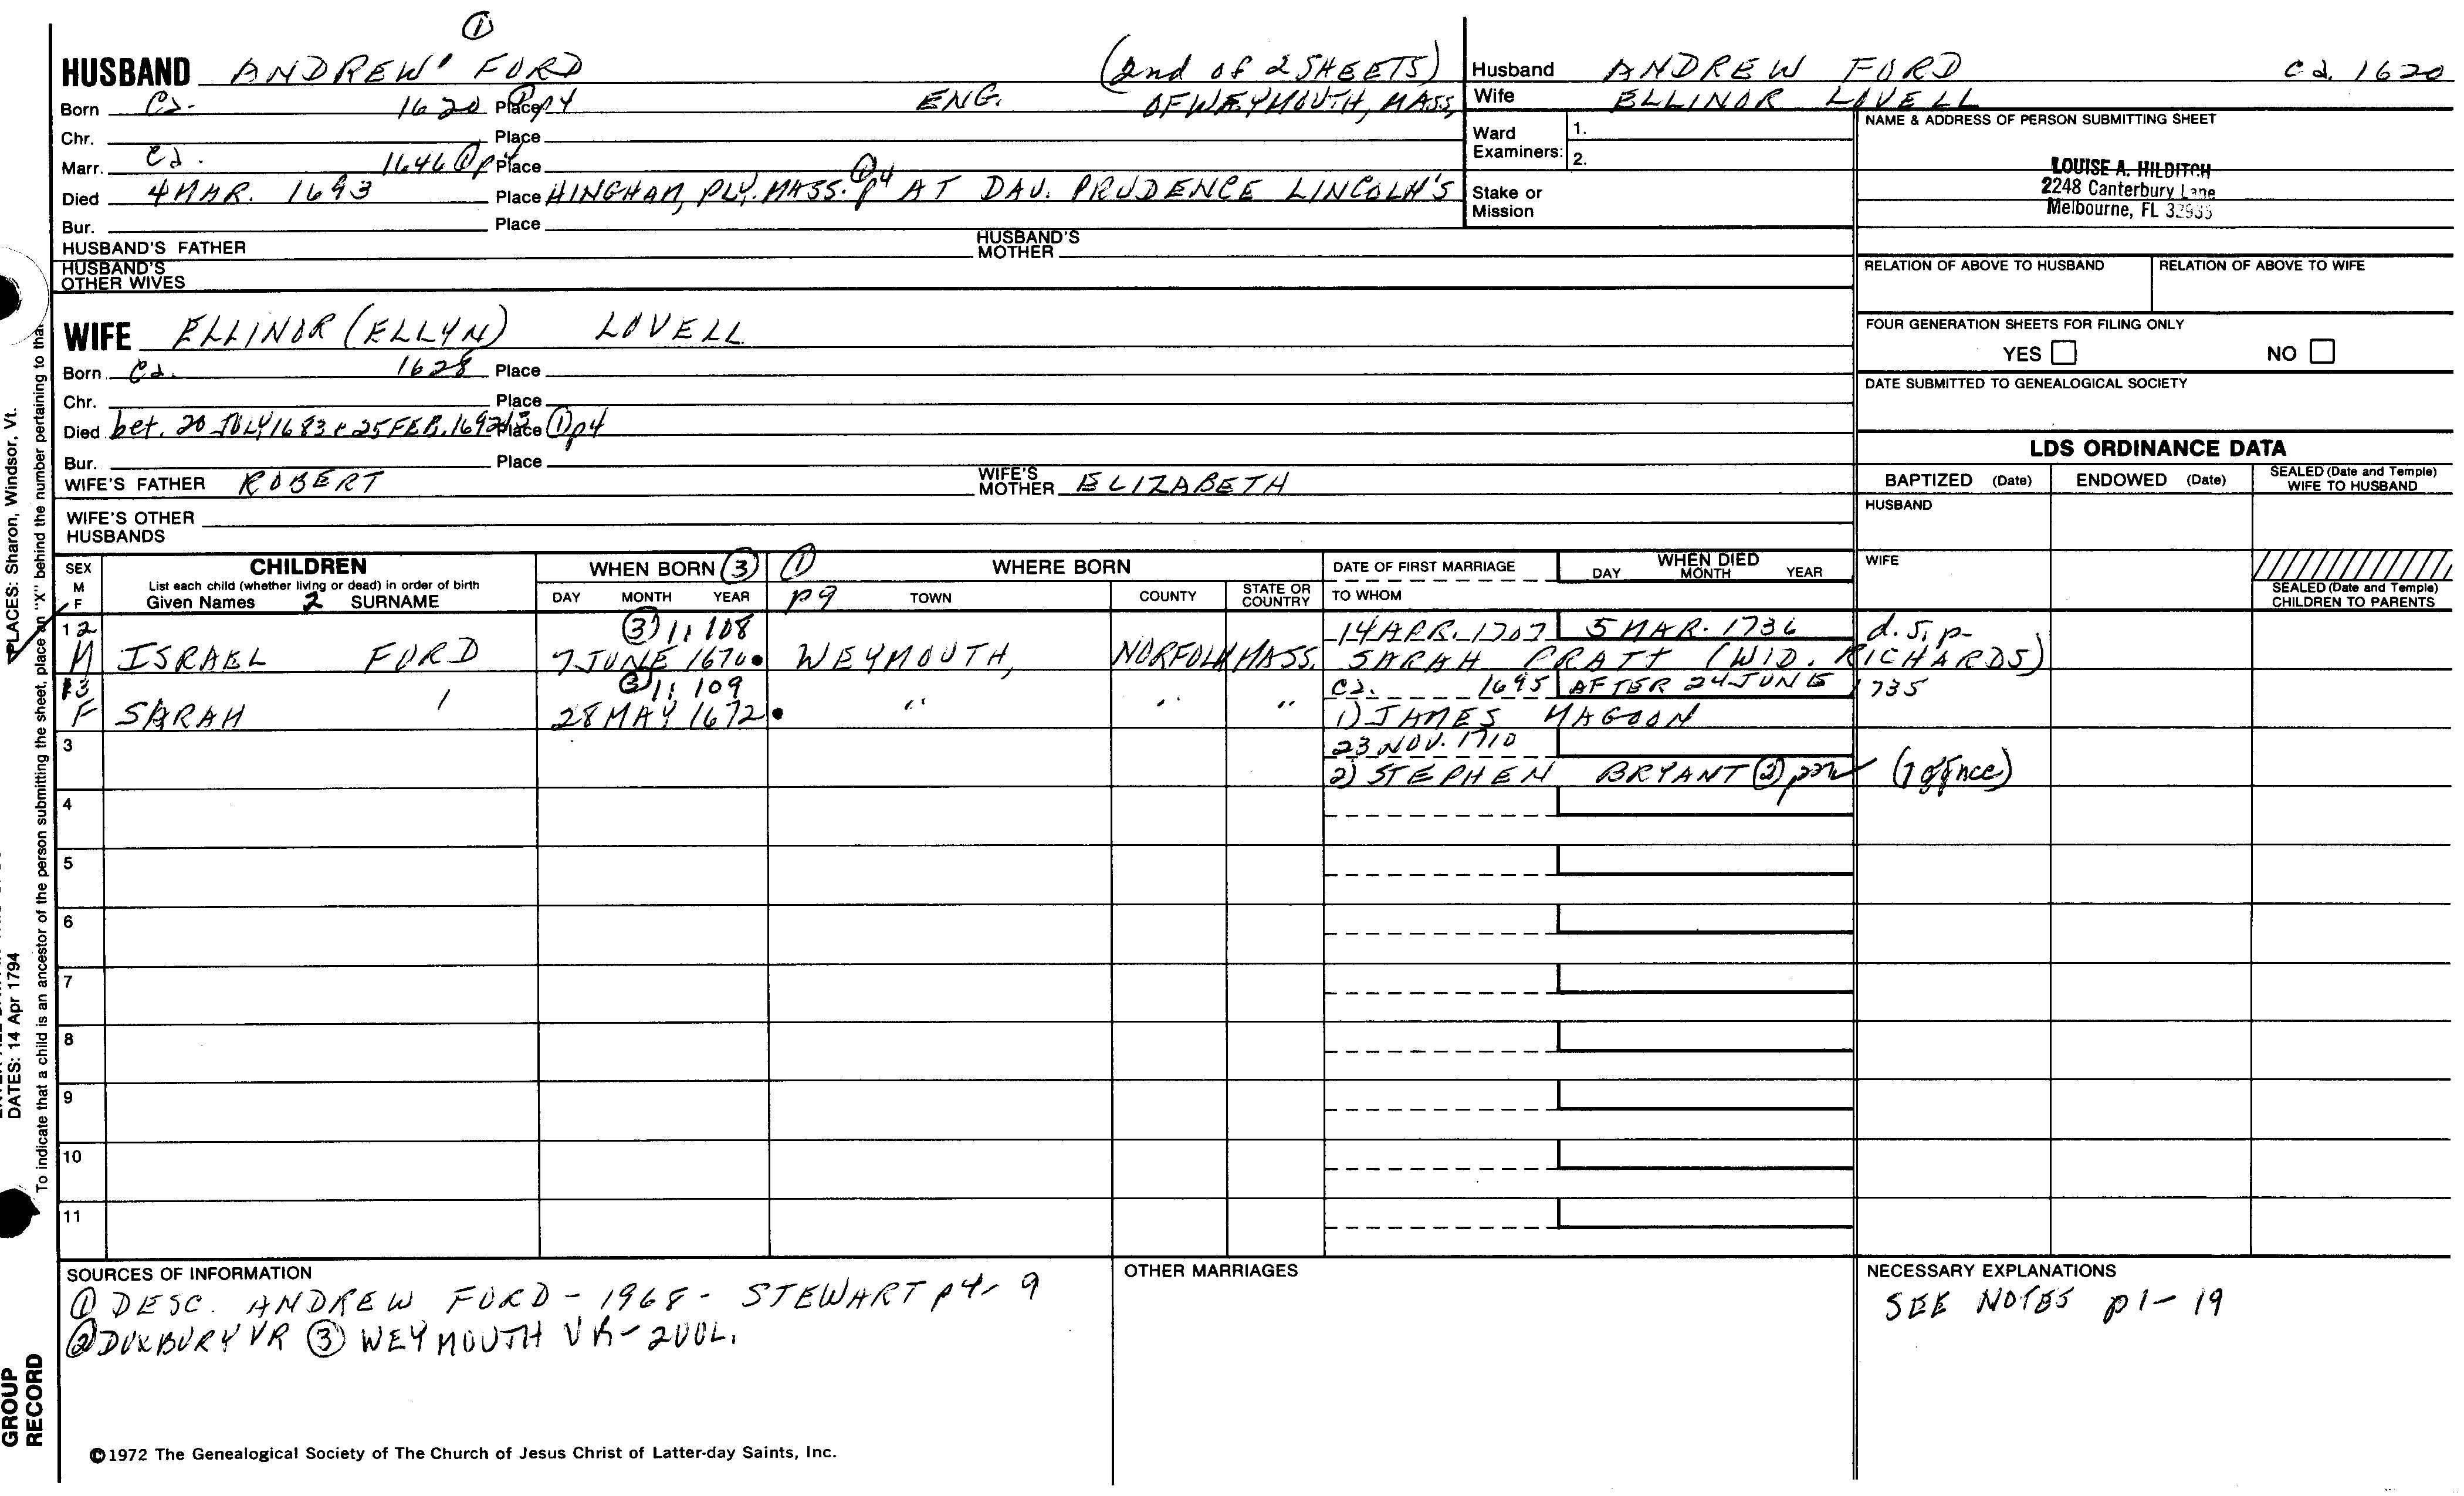 ①
HUSBAND ANDREW¹ FORD (2nd of 2 SHEETS)
Born Ca. 1620 ① p4 Place ENG. OF WEYMOUTH, MASS.
Chr. Place
Marr. Ca. 1646 ① p4 Place
Died 4 MAR. 1693 Place HINGHAM, PLY. MASS. ① p4 AT DAU. PRUDENCE LINCOLN'S
Bur. Place
HUSBAND'S FATHER HUSBAND'S MOTHER
HUSBAND'S OTHER WIVES
Husband ANDREW FORD Ca. 1620
Wife ELLINOR LOVELL
Ward Examiners: 1.
2.
Stake or Mission
NAME & ADDRESS OF PERSON SUBMITTING SHEET
LOUISE A. HILDITCH
2248 Canterbury Lane
Melbourne, FL 32935
RELATION OF ABOVE TO HUSBAND RELATION OF ABOVE TO WIFE
FOUR GENERATION SHEETS FOR FILING ONLY
YES NO
DATE SUBMITTED TO GENEALOGICAL SOCIETY
WIFE ELLINOR (ELLYN) LOVELL
Born Ca. 1628 Place
Chr. Place
Died bet. 20 JULY 1683 & 25 FEB. 1692/3 Place ① p4
Bur. Place
WIFE'S FATHER ROBERT WIFE'S MOTHER ELIZABETH
WIFE'S OTHER HUSBANDS
LDS ORDINANCE DATA
BAPTIZED (Date) ENDOWED (Date) SEALED (Date and Temple) WIFE TO HUSBAND
HUSBAND
WIFE
SEALED (Date and Temple) CHILDREN TO PARENTS
SEX M F CHILDREN WHEN BORN ③ ① WHERE BORN DATE OF FIRST MARRIAGE WHEN DIED
List each child (whether living or dead) in order of birth
Given Names 2 SURNAME DAY MONTH YEAR p9 TOWN COUNTY STATE OR COUNTRY TO WHOM DAY MONTH YEAR
12 ③ 1:108 14 APR. 1707 5 MAR. 1736 d.s.p.
M ISRAEL FORD 7 JUNE 1670 WEYMOUTH, NORFOLK MASS. SARAH PRATT (WID. RICHARDS)
13 ③ 1:109 Ca. 1695 AFTER 24 JUNE 1735
F SARAH " 28 MAY 1672 " " " 1) JAMES MAGOON
3 23 NOV. 1710
2) STEPHEN BRYANT ②
4
5
6
7
8
9
10
11
SOURCES OF INFORMATION
① DESC. ANDREW FORD - 1968 - STEWART p4-9
② DUXBURY VR ③ WEYMOUTH VR - 2VOL.
OTHER MARRIAGES
NECESSARY EXPLANATIONS
SEE NOTES p1-19
©1972 The Genealogical Society of The Church of Jesus Christ of Latter-day Saints, Inc.
PLACES: Sharon, Windsor, Vt.
DATES: 14 Apr 1794
To indicate that a child is an ancestor of the person submitting the sheet, place an "X" behind the number pertaining to that
GROUP
RECORD